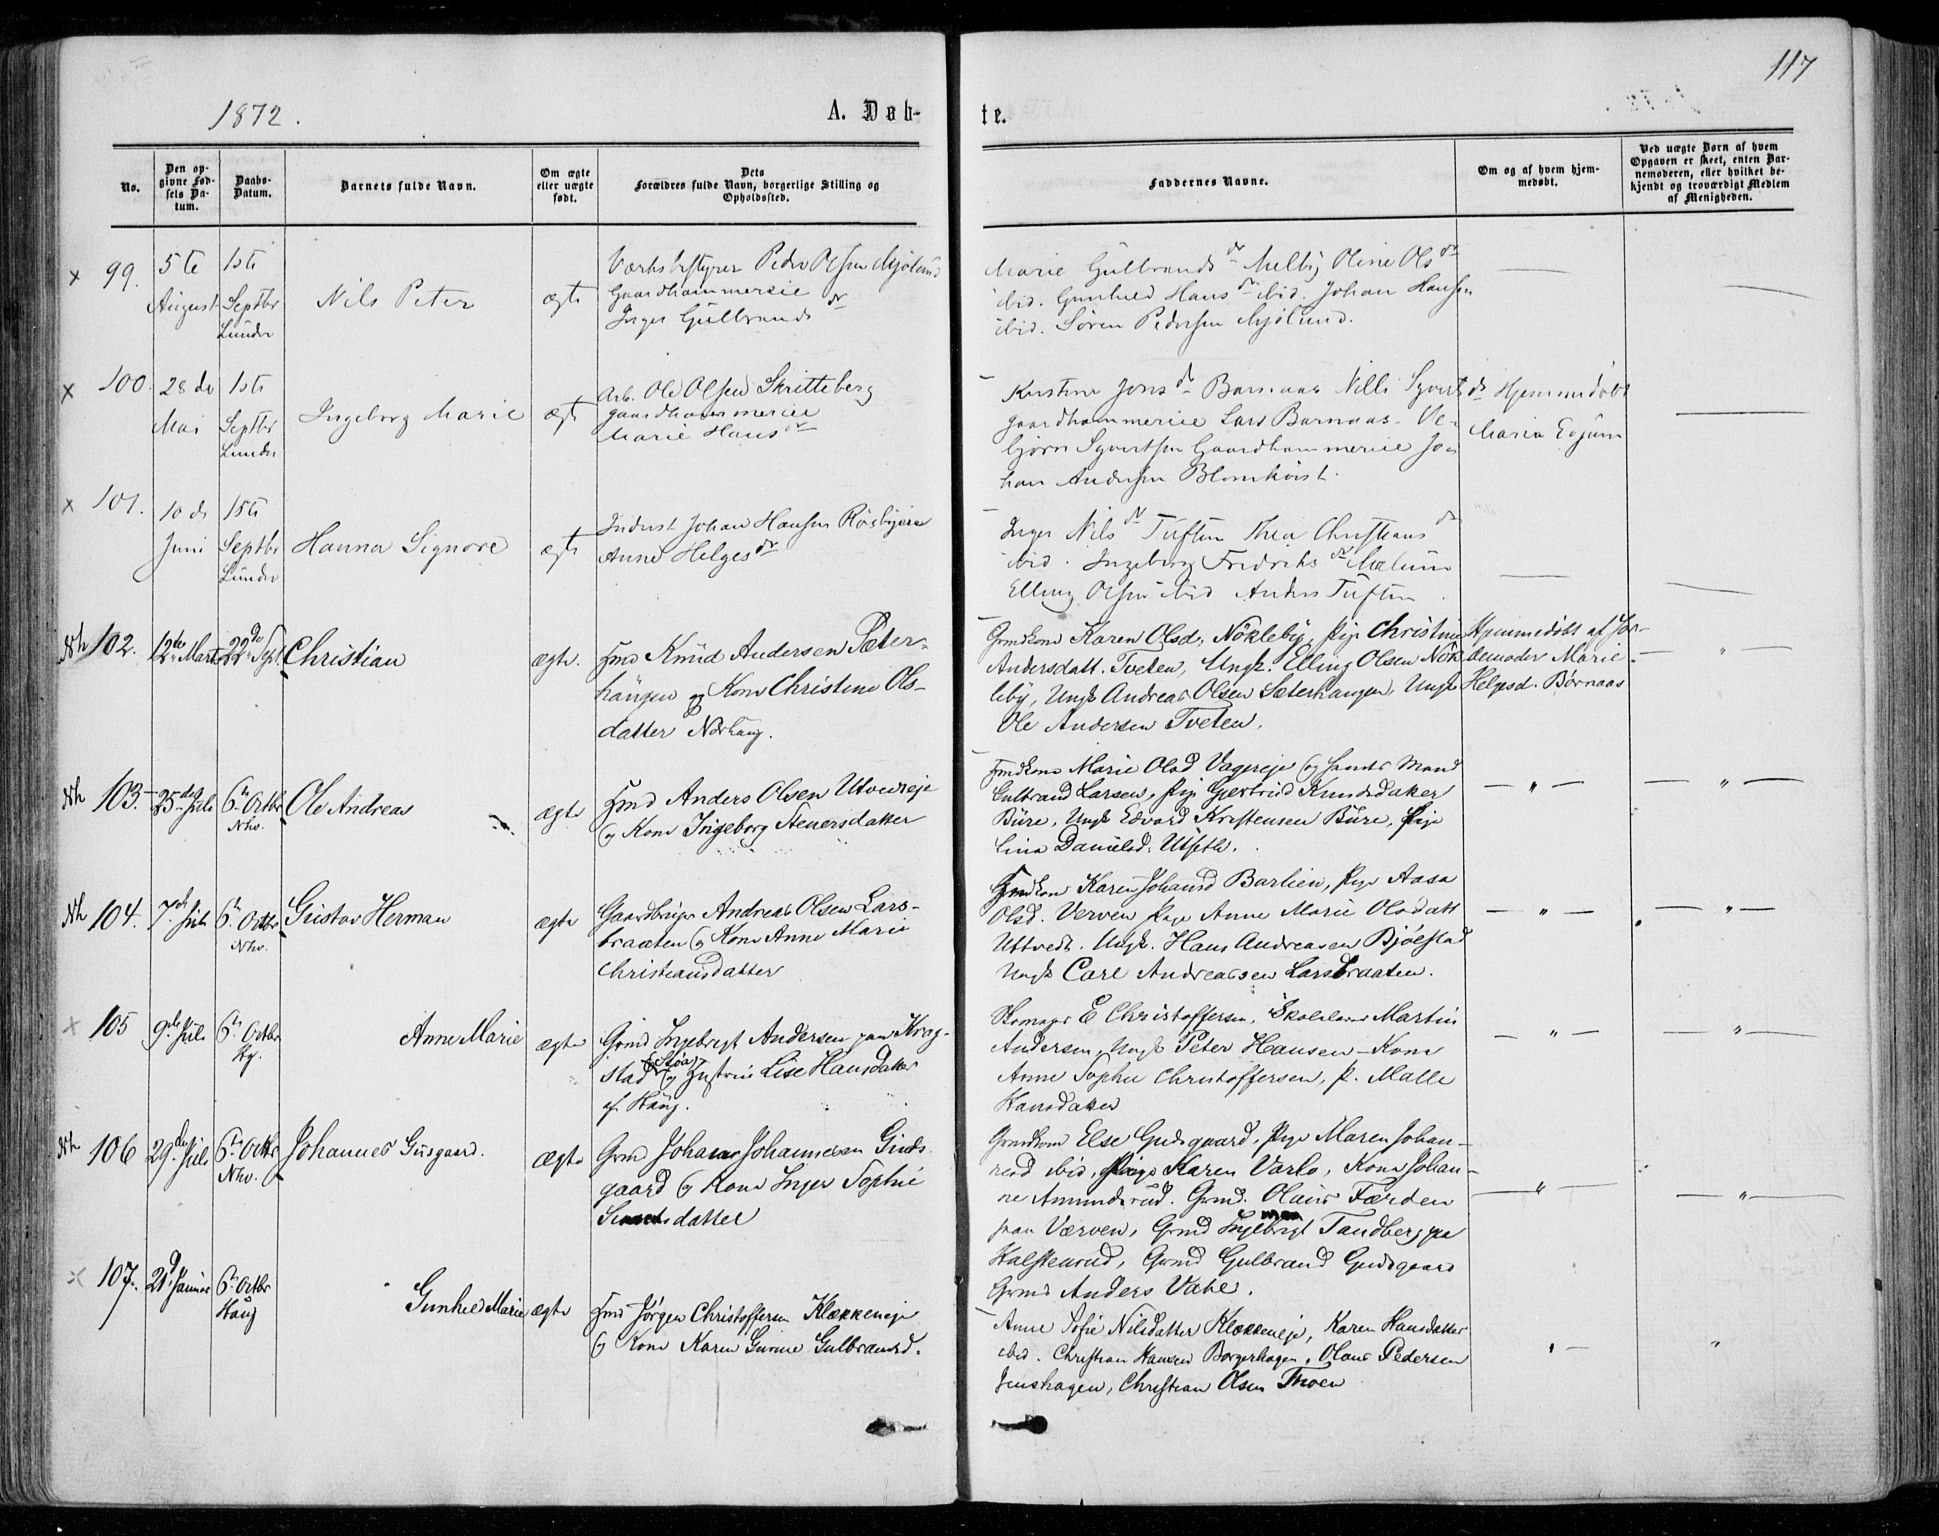 117
1872.
A. Døb-
te.
No.
Den op-
givne Fød-
sels Da-
tum.
Daabs-
Datum.
Barnets fulde Navn.
Om ægte
eller uægte
født.
Dets
Forældres fulde Navn, borgerlige Stilling og
Opholdssted.
Faddernes Navne.
Om og af hvem hjem-
medøbt.
Ved uægte Børn af hvem
Opgaven er skeet, enten Bar-
nemoderen, eller hvilket be-
kjendt og troværdigt Medlem
af Menigheden.
x 99. 5te August
1ste Septbr Lunder
Nils Peter
ægte
Værksbestyrer Peder Olsen Mjølund
Gaardhammersie
Inger Gulbrandsdr
Marie Gulbrandsdr Melby Oline Olsdr
ibid. Gunhild Hansdr ibid. Johan Hansen
ibid. Søren Pedersen Mjølund.
x 100. 28de Mai
1ste Septbr Lunder
Ingeborg Marie
ægte
Arb. Ole Olsen Skritteberg
Gaardhammersie
Marie Hansdr
Kirstine Jonsdr Barnaas Nilli Syvertsdr
Gaardhammersie Lars Barnaas. Ve-
bjørn Syvertsen Gaardhammersie Jo-
han Andersen Blomkvist.
Hjemmedøbt
Maria
x 101. 10de Juni
1ste Septbr Lunder
Hanna Signore
ægte
Inderst Johan Hansen
Anne Helgesdr
Inger Nilsdr Tuften Thea Christiansdr
ibid. Ingeborg Fredriksdr Mælum
Elling Olsen ibid Anders Tuften
Nh 102. 12te Marts
22de Sept.
Christian
ægte.
Hmd Knud Andersen Sæter-
haugen og Kone Christine Ols-
datter Nørhaug.
Grmdkone Karen Olsd. Nökleby, Pige Christine
Andersdatt. Tveten, Ungk. Elling Olsen Nök-
leby, Ungk Andreas Olsen Sæterhaugen, Ungk
Ole Andersen Tveten.
Hjemmedöbt af Jor-
demoder Marie
Helgesd. Børnaas
— " —
Nh 103. 25de Juli
6te Octbr Nhv.
Ole Andreas
ægte
Hmd Anders Olsen Utvedeje
og Kone Ingeborg Steuersdatter
Hmdkone Marie Olsd Vagereje og hendes Mand
Gulbrand Larsen, Pige Gjertrud Knudsdatter
Büre, Ungk Edvard Kristensen Büre, Pige
Lina Danielsd.
— " —
— " —
Nh 104. 7de Juli
6te Octbr Nhv.
Gustav Herman
ægte
Gaardbruger Andreas Olsen Lars-
braaten og Kone Anne Marie
Christiansdatter
Grmdkone Karen Johansd Barlien, Pige Aasa
Olsd. Verven Pige Anne Marie Olsdatt
Uttvedt. Ungk. Hans Andreasen Bjölstad
Ungk Carl Andreassen Larsbraaten.
— " —
— " —
x 105 9de Juli
6te Octbr Hg.
Anne Marie
ægte
Grmd Ingebrigt Andersen paa Krag-
stad og Hustru Lise Hansdatter
af Haug.
Skomager E Christoffersen, Skolelærer Martin
Andersen, Ungk Peter Hansen – Kone
Anne Sophie Christoffersen, P. Malle
Hansdatter
— " —
— " —
Nh 106 29de Juli
6te Octbr Nhv.
Johannes Gusgaard.
ægte
Grmd Johan Johannesen Guds-
gaard og Kone Inger Sophie
Grmdkone Else Gudsgaard, Pige Maren Johan-
nesd ibid, Pige Karen Varlo, Kone Johan-
ne Amundsrud. Grmd. Olaus Færden
paa Værven, Grmd Ingebrigt Tandberg pa
Halstenrud, Grmd Gulbrand Gudsgaard
Grmd Anders Vahl.
— " —
— " —
x 107. 21de Januar
6te Octbr Haug
Gunhild Marie
ægte
Hmd Jörgen Christoffersen Klækkeneje
og Kone Karen Gurine Gulbrandsd.
Anne Sofie Nilsdatter Klækkeneje, Karen Hansdatter
ibid. Christian Hansen Borgerhagen, Olaus Pedersen
Jenshagen, Christian Olsen Thoen
" —
"